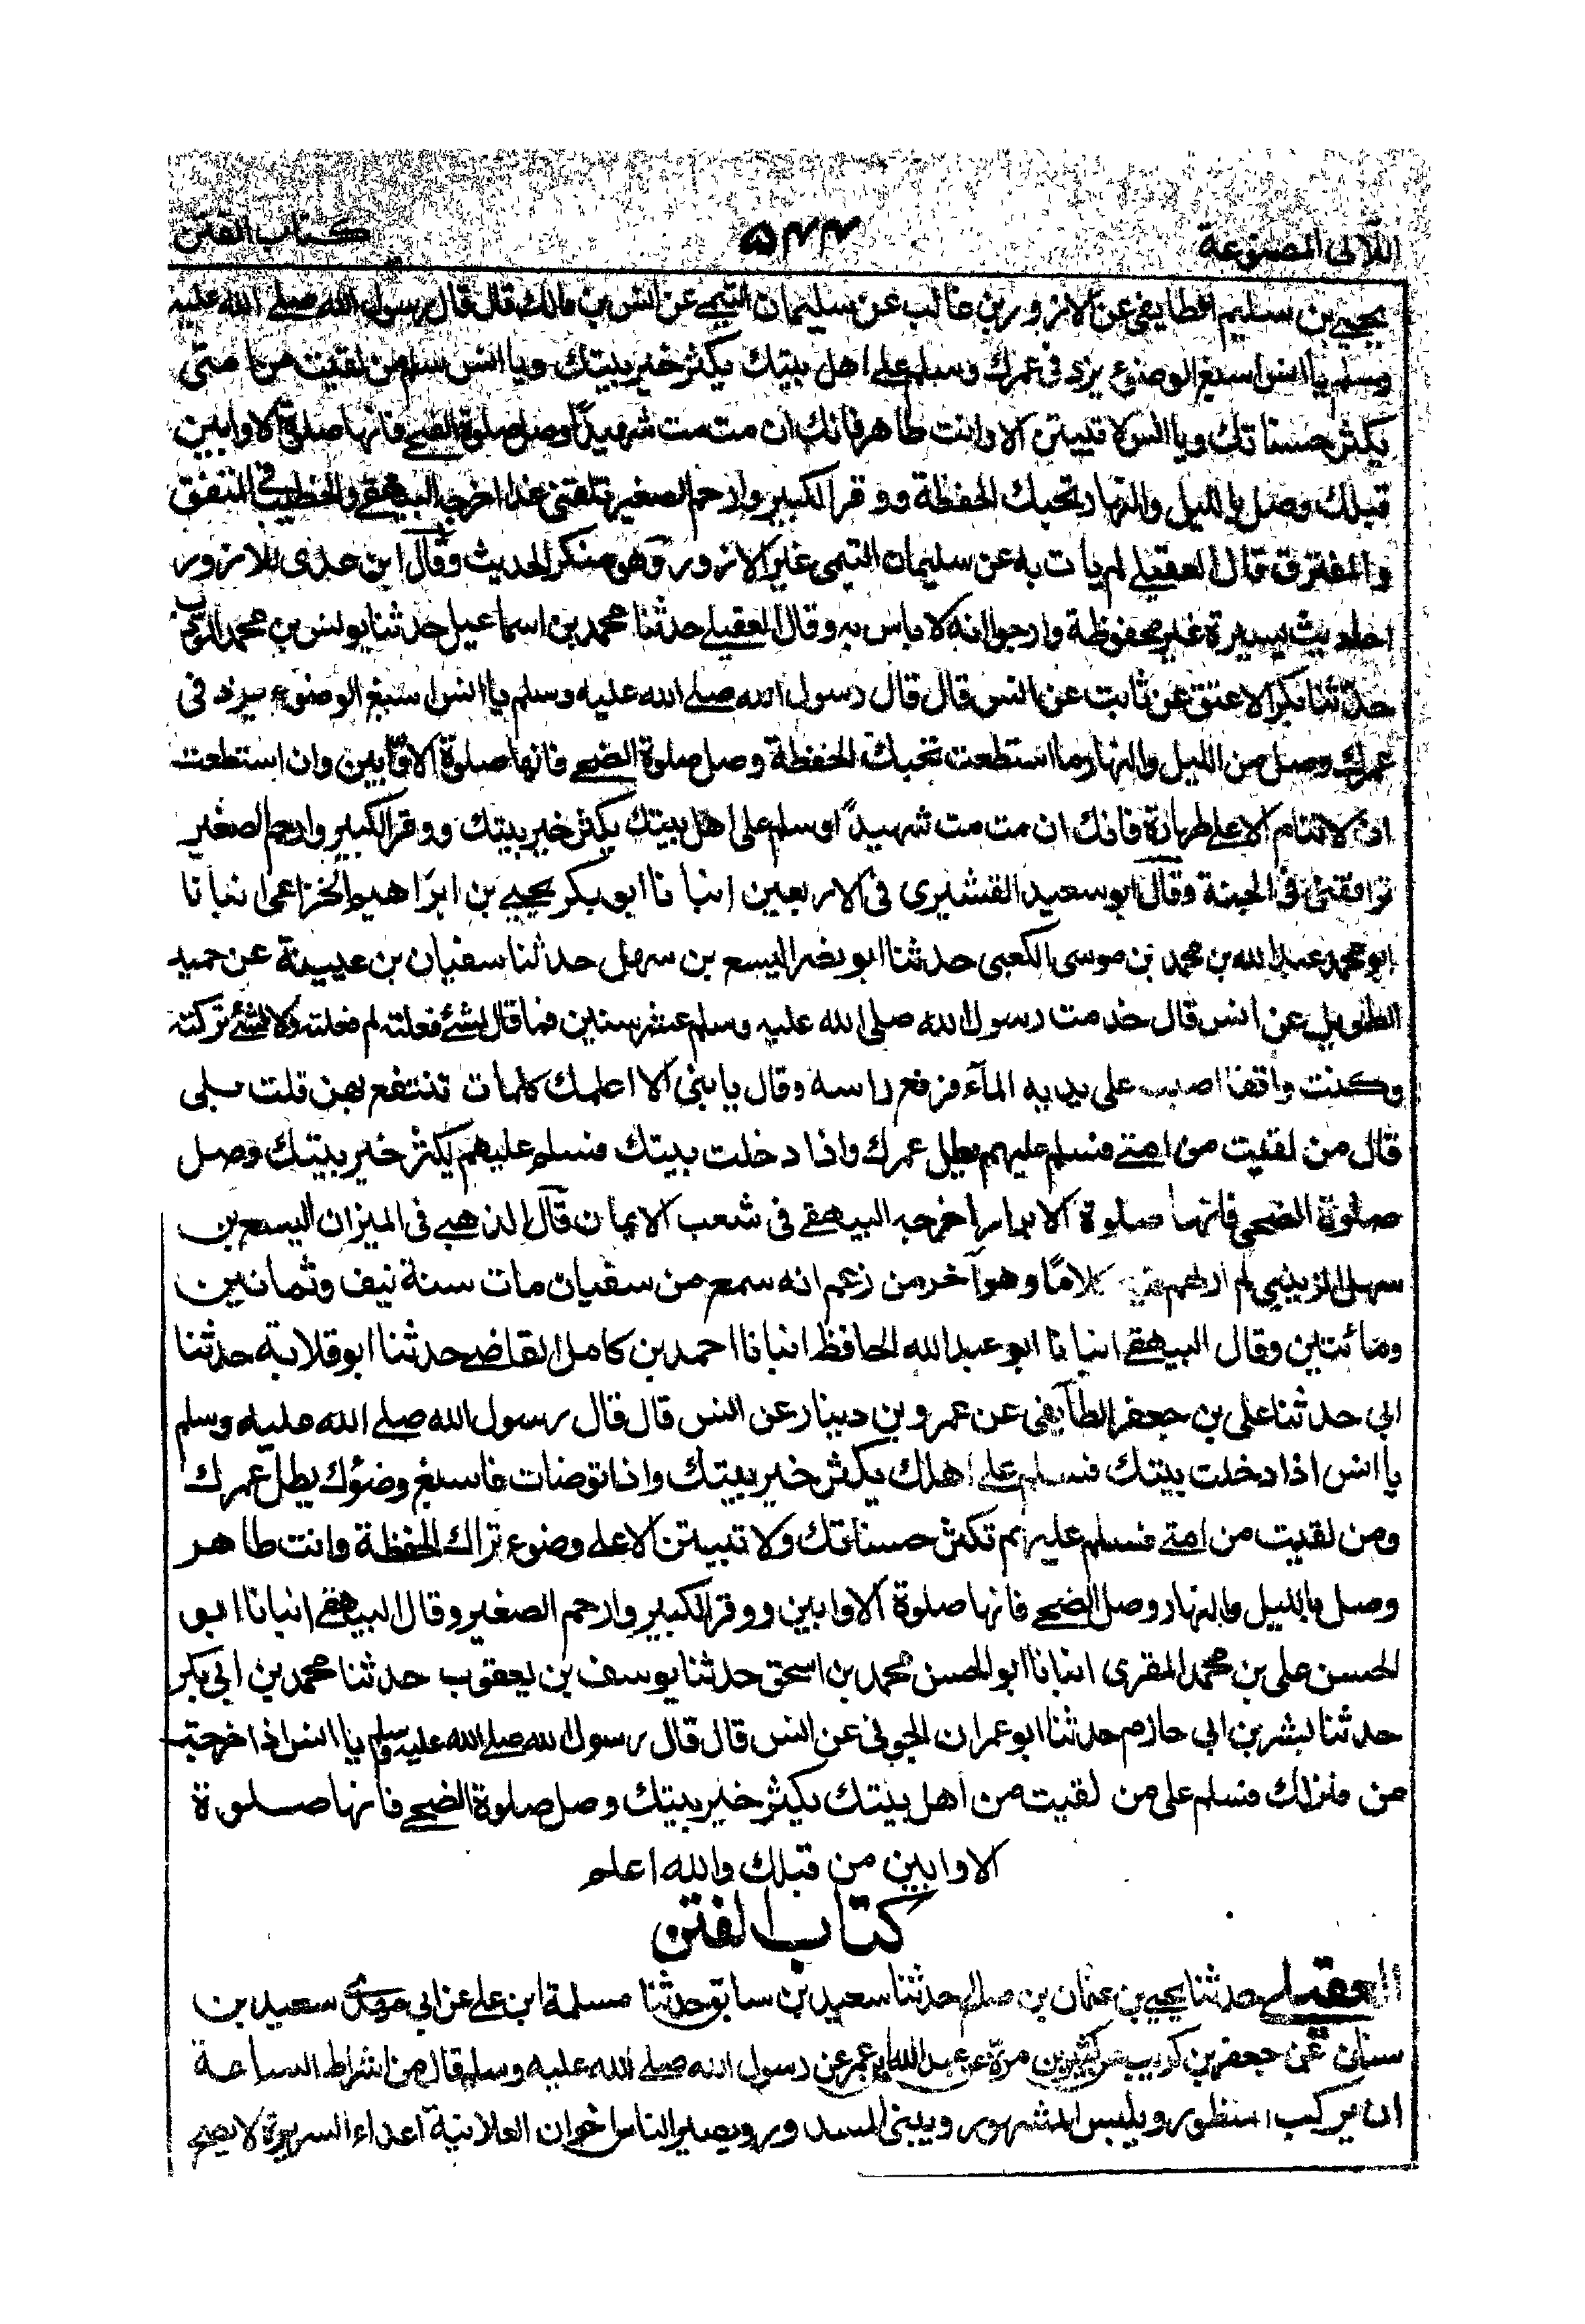 اللآلى المصنوعة ٥٤٤ كتاب الفتن
يحيى بن سليم الطايفى عن الازور بن غالب عن سليمان التيمى عن انس بن مالك قال قال رسول الله صلى الله عليه
وسلم يا انس اسبغ الوضوء يزد فى عمرك وسلم على اهل بيتك يكثر خير بيتك ويا انس سلم من لقيت من امتى
يكثر حسناتك ويا انس لا تبيتن الا وانت طاهر فانك ان مت مت شهيدًا وصل صلوة الضحى فانها صلوة الاوابين
قبلك وصل بالليل والنهار تحبك الحفظة ووقر الكبير وارحم الصغير تلقنى غدا اخرجه البيهقى والخطيب فى المتفق
والمفترق قال العقيلى لم يات به عن سليمان التيمى غير الازور وهو منكر الحديث وقال ابن عدى للازور
احاديث يسيرة غير محفوظة وارجو انه لا باس به وقال العقيلى حدثنا محمد بن اسماعيل حدثنا يونس بن محمد المؤدب
حدثنا بكر الاعنق عن ثابت عن انس قال قال رسول الله صلى الله عليه وسلم يا انس اسبغ الوضوء يزد فى
عمرك وصل من الليل والنهار ما استطعت تحبك الحفظة وصل صلوة الضحى فانها صلوة الاوّابين وان استطعت
ان لا تنام الا على طهارة فانك ان مت مت شهيدًا وسلم على اهل بيتك يكثر خير بيتك ووقر الكبير وارحم الصغير
ترافقنى فى الجنة وقال ابو سعيد القشيرى فى الاربعين انبانا ابو بكر يحيى بن ابراهيم الخزاعى انبانا
ابو محمد عبد الله بن محمد بن موسى الكعبى حدثنا ابو نضر اليسع بن سهل حدثنا سفيان بن عيينة عن حميد
الطويل عن انس قال خدمت رسول الله صلى الله عليه وسلم عشر سنين فما قال لشئ فعلته لم فعلته ولا لشئ تركته
وكنت واقفا اصب على يديه المآء فرفع راسه وقال يا بنى الا اعلمك كلمات تنتفع بهن قلت بلى
قال من لقيت من امتى فسلم عليهم يطل عمرك واذا دخلت بيتك فسلم عليهم يكثر خير بيتك وصل
صلوة الضحى فانها صلوة الابرار اخرجه البيهقى فى شعب الايمان قال الذهبى فى الميزان اليسع بن
سهل الزينبى لم ار لهم فيه كلامًا وهو آخر من زعم انه سمع من سفيان مات سنة نيف وثمانين
ومائتين وقال البيهقى انبانا ابو عبد الله الحافظ انبانا احمد بن كامل القاضى حدثنا ابو قلابة حدثنا
ابى حدثنا على بن جعفر الطآيفى عن عمرو بن دينار عن انس قال قال رسول الله صلى الله عليه وسلم
يا انس اذا دخلت بيتك فسلم على اهلك يكثر خير بيتك واذا توضات فاسبغ وضوئك يطل عمرك
ومن لقيت من امتى فسلم عليهم تكثر حسناتك ولا تبيتن الا على وضوء تراك الحفظة وانت طاهر
وصل بالليل والنهار وصل الضحى فانها صلوة الاوابين ووقر الكبير وارحم الصغير وقال البيهقى انبانا ابو
الحسن على بن محمد المقرى انبانا ابو الحسن محمد بن اسحق حدثنا يوسف بن يعقوب حدثنا محمد بن ابى بكر
حدثنا بشر بن ابى حازم حدثنا ابو عمران الجونى عن انس قال قال رسول الله صلى الله عليه وسلم يا انس اذا خرجت
من منزلك فسلم على من لقيت من اهل بيتك يكثر خير بيتك وصل صلوة الضحى فانها صلوة
الاوابين من قبلك والله اعلم
كتاب الفتن
العقيلى حدثنا يحيى بن عثمان بن صالح حدثنا سعيد بن سابق حدثنا مسلمة ابن على عن ابى مهدى سعيد بن
سنان عن جعفر بن كريب عن كثير بن مرة عن عبد الله بن عمر عن رسول الله صلى الله عليه وسلم قال من اشراط الساعة
ان يركب المنظور ويلبس المشهور ويبنى المسدور ويصير الناس اخوان العلانية اعداء السريرة لا يصح